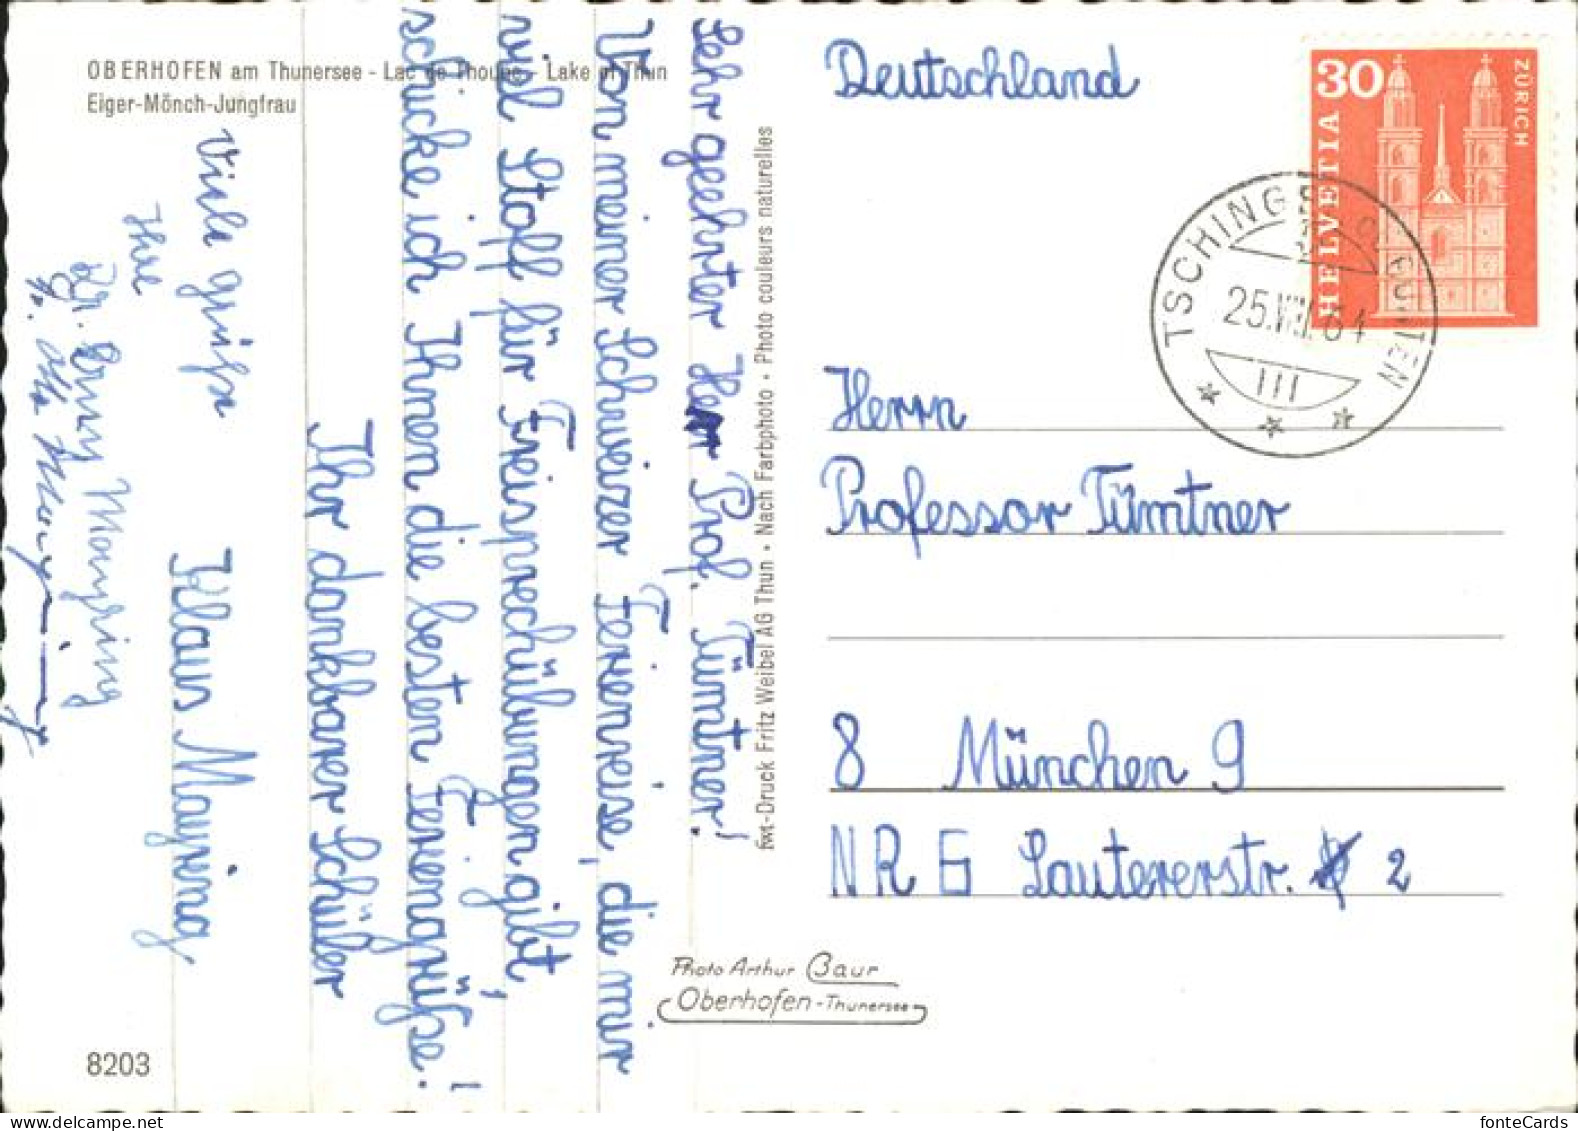 OBERHOFEN am Thunersee - Lac de Thoune - Lake of Thun
Eiger-Mönch-Jungfrau
Sehr geehrter Herr Prof. Tümtner!
Von meiner Schweizer Ferienreise, die mir
viel Stoff für Freisprechübungen gibt,
schicke ich Ihnen die besten Feriengrüße!
Ihr dankbarer Schüler
Klaus Mayring
Viele Grüße
Ihre
Mayring
8203
fwt-Druck Fritz Weibel AG Thun • Nach Farbphoto • Photo couleurs naturelles
Photo Arthur Baur
Oberhofen-Thunersee
Deutschland
30
HELVETIA
ZÜRICH
TSCHINGEL OB GUNTEN
25.VIII.64
Herrn
Professor Tümtner
8 München 9
NR 6 Lautererstr. 2
fonteCards